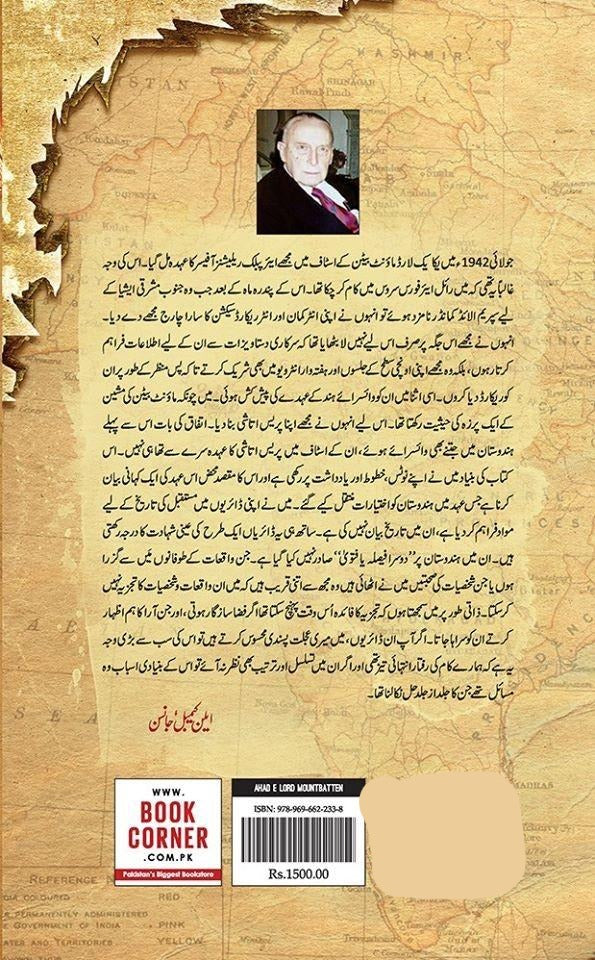 جولائی 1942ء میں یکایک لارڈ ماؤنٹ بیٹن کے اسٹاف میں مجھے ایئر پبلک ریلیشنز آفیسر کا عہدہ مل گیا۔ اس کی وجہ
غالباً یہ تھی کہ میں رائل ایئر فورس سروس میں کام کر چکا تھا۔ اس کے پندرہ ماہ کے بعد جب وہ جنوب مشرقی ایشیا کے
لیے سپریم الائڈ کمانڈر نامزد ہوئے تو انہوں نے اپنی انٹر کمان اور انٹر ریکارڈ سیکشن کا سارا چارج مجھے دے دیا۔
انہوں نے مجھے اس جگہ پر صرف اس لیے نہیں لا بٹھایا تھا کہ سرکاری دستاویزات سے ان کے لیے اطلاعات فراہم
کرتا رہوں، بلکہ وہ مجھے اپنی اونچی سطح کے جلسوں اور ہفتہ وار انٹرویو میں بھی شریک کرتے تاکہ پس منظر کے طور پر ان
کو ریکارڈ دیا کروں۔ اسی اثنا میں ان کو وائسرائے ہند کے عہدے کی پیش کش ہوئی۔ میں چونکہ ماؤنٹ بیٹن کی مشین
کے ایک پرزہ کی حیثیت رکھتا تھا۔ اس لیے انہوں نے مجھے اپنا پریس اتاشی بنا دیا۔ اتفاق کی بات اس سے پہلے
ہندوستان میں جتنے بھی وائسرائے ہوئے، ان کے اسٹاف میں پریس اتاشی کا عہدہ سرے سے تھا ہی نہیں۔ اس
کتاب کی بنیاد میں نے اپنے نوٹس، خطوط اور یادداشت پر رکھی ہے اور اس کا مقصد محض اس عہد کی ایک کہانی بیان
کرنا ہے جس عہد میں ہندوستان کو اختیارات منتقل کیے گئے۔ میں نے اپنی ڈائریوں میں مستقبل کی تاریخ کے لیے
مواد فراہم کر دیا ہے، ان میں تاریخ بیان نہیں کی ہے۔ ساتھ ہی یہ ڈائریاں ایک طرح کی عینی شہادت کا درجہ رکھتی
ہیں۔ ان میں ہندوستان پر ”دوسرا فیصلہ یا فتویٰ“ صادر نہیں کیا گیا ہے۔ جن واقعات کے طوفانوں میں مَیں سے گزرا
ہوں یا جن شخصیات کی صحبتیں میں نے اٹھائی ہیں وہ مجھ سے اتنی قریب ہیں کہ میں ان واقعات و شخصیات کا تجزیہ نہیں
کر سکتا۔ ذاتی طور پر میں سمجھتا ہوں کہ تجزیہ کا فائدہ اُس وقت پہنچ سکتا تھا اگر فضا سازگار ہوتی، اور جن آرا کا ہم اظہار
کرتے ان کو سراہا جاتا۔ اگر آپ ان ڈائریوں، میں میری عجلت پسندی محسوس کرتے ہیں تو اس کی سب سے بڑی وجہ
یہ ہے کہ ہمارے کام کی رفتار انتہائی تیز تھی اور اگر ان میں تسلسل اور ترتیب بھی نظر نہ آئے تو اس کے بنیادی اسباب وہ
مسائل تھے جن کا جلد از جلد حل نکالنا تھا۔
ایلن کیمبل جانسن
WWW.
BOOK
CORNER
.COM.PK
Pakistan's Biggest Bookstore
AHAD E LORD MOUNTBATTEN
ISBN: 978-969-662-233-8
Rs.1500.00
REFERENCE
RED
PERMANENTLY ADMINISTERED
GOVERNMENT OF INDIA
PINK
YELLOW